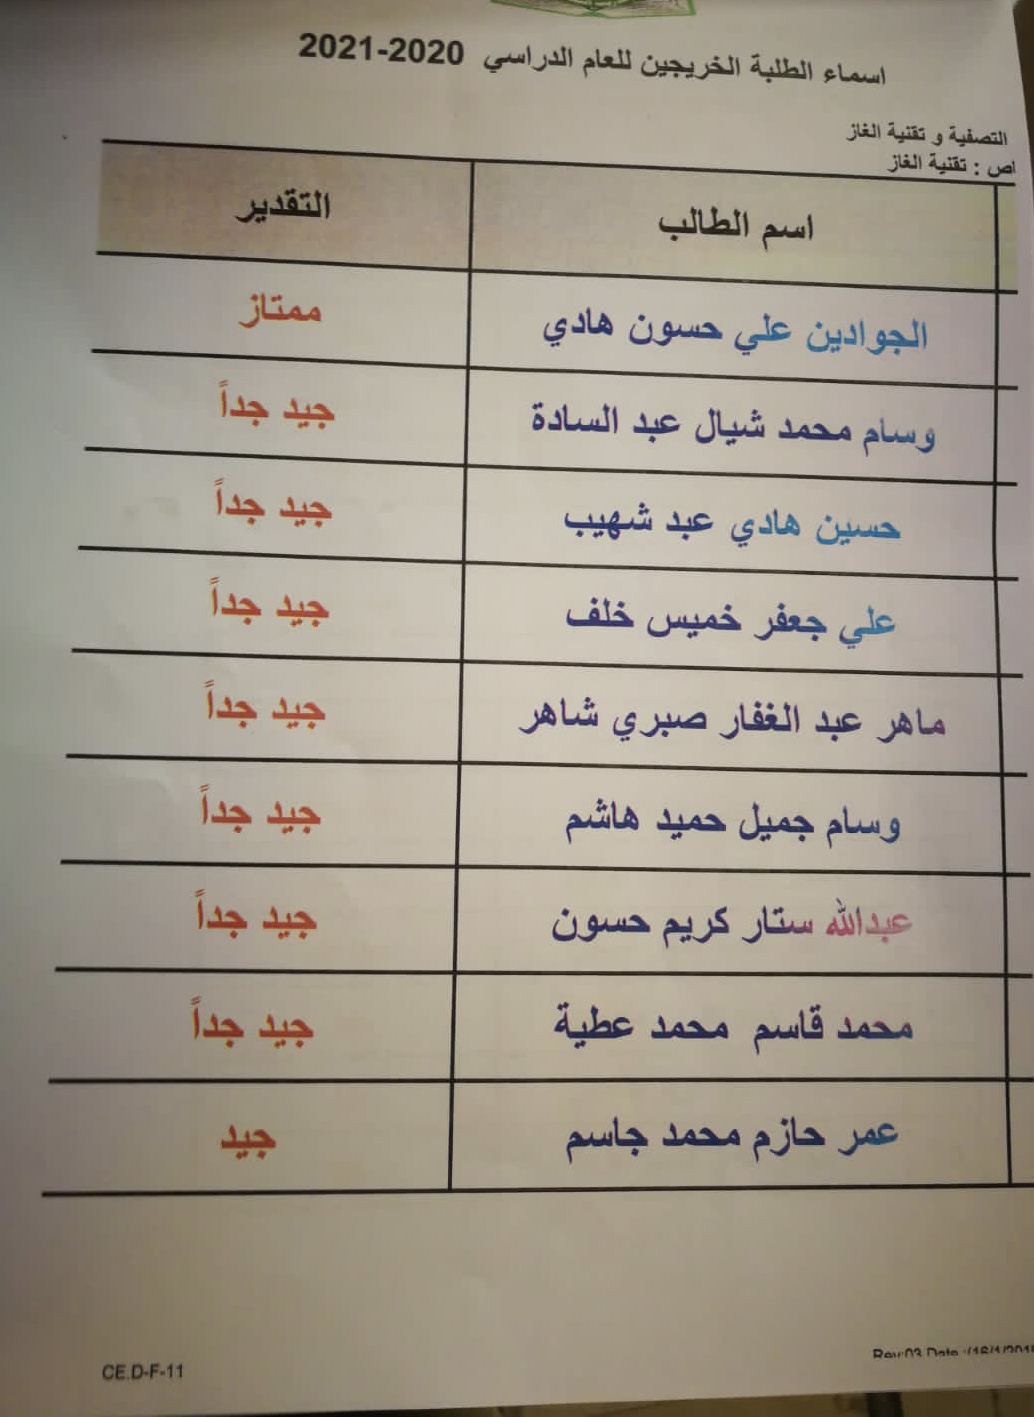 اسماء الطلبة الخريجين للعام الدراسي 2020-2021
التصفية و تقنية الغاز
اص : تقنية الغاز
اسم الطالب التقدير
الجوادين علي حسون هادي ممتاز
وسام محمد شيال عبد السادة جيد جداً
حسين هادي عبد شهيب جيد جداً
علي جعفر خميس خلف جيد جداً
ماهر عبد الغفار صبري شاهر جيد جداً
وسام جميل حميد هاشم جيد جداً
عبدالله ستار كريم حسون جيد جداً
محمد قاسم محمد عطية جيد جداً
عمر حازم محمد جاسم جيد
CE.D-F-11
Rev:03 Date